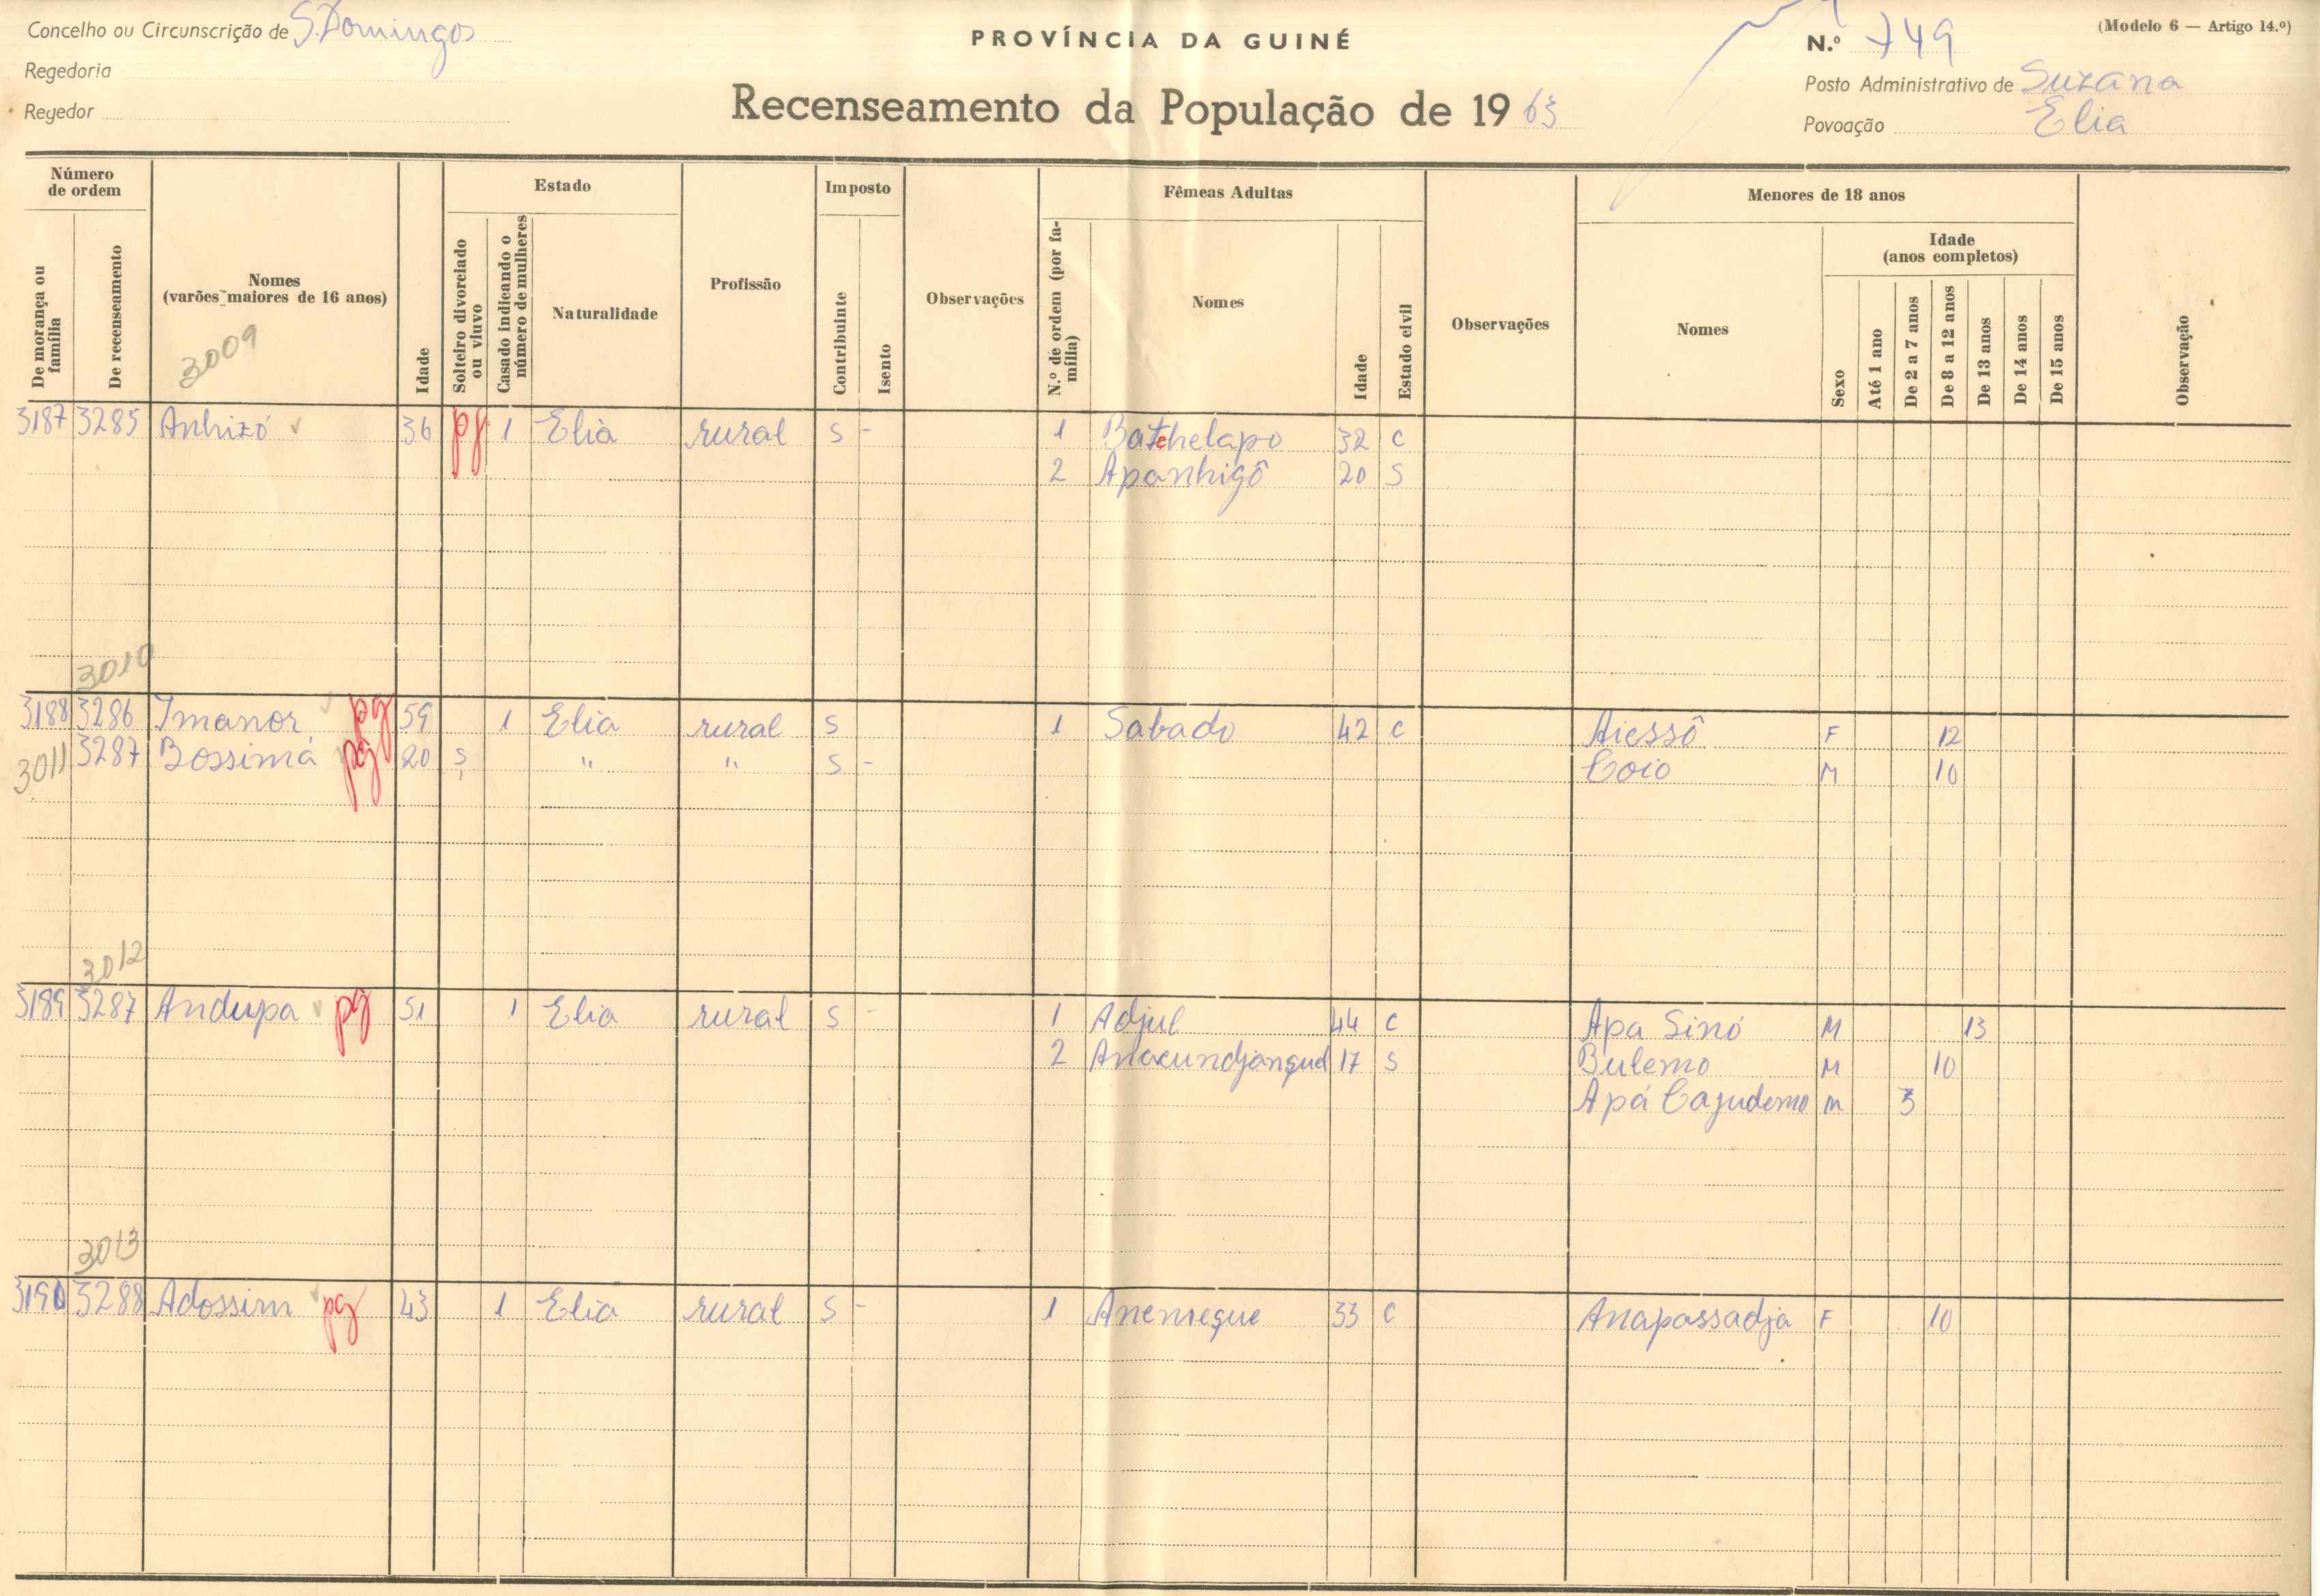 Concelho ou Circunscrição de S. Domingos
PROVÍNCIA DA GUINÉ
N.º 749
(Modelo 6 — Artigo 14.º)
Regedoria
Recenseamento da População de 1963
Posto Administrativo de Suzana
Regedor
Povoação Elia
Número de ordem
De morança ou família
De recenseamento
Nomes
(varões maiores de 16 anos)
3009
Idade
Estado
Solteiro divorciado ou viuvo
Casado indicando o número de mulheres
Naturalidade
Profissão
Imposto
Contribuinte
Isento
Observações
Fêmeas Adultas
N.º de ordem (por família)
Nomes
Idade
Estado civil
Observações
Menores de 18 anos
Nomes
Sexo
Idade
(anos completos)
Até 1 ano
De 2 a 7 anos
De 8 a 12 anos
De 13 anos
De 14 anos
De 15 anos
Observação
3187 3285 Anhizó 36 pg 1 Elia rural S - 1 Batchelapo 32 C
2 Apanhigô 20 S
3010
3188 3286 Imanor pg 59 1 Elia rural S 1 Sabado 42 C Aiessô F 12
3011 3287 Bossimá pg 20 S " " S - Coio M 10
3012
3189 3287 Andupa pg 51 1 Elia rural S - 1 Adjul 44 C Apa Sinó M 13
2 17 S Bulemo M 10
Apá Cajudemo M 3
3013
3190 3288 Adossim pg 43 1 Elia rural S - 1 Anemeque 33 C Anapassadja F 10